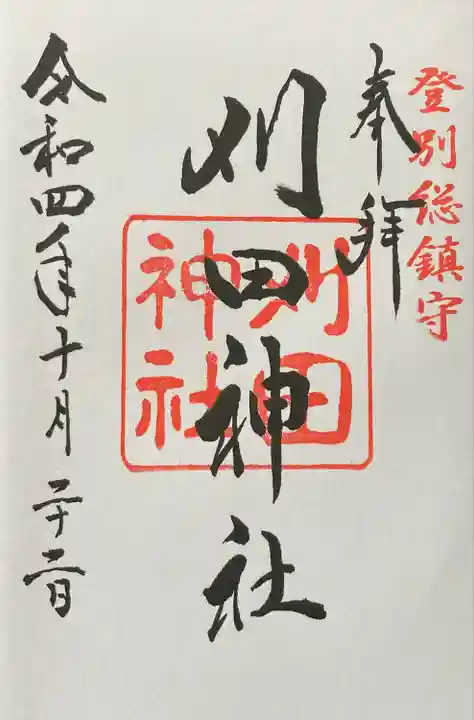 登別総鎮守
奉拝
刈田神社
刈田神社
令和四年十月二十二日